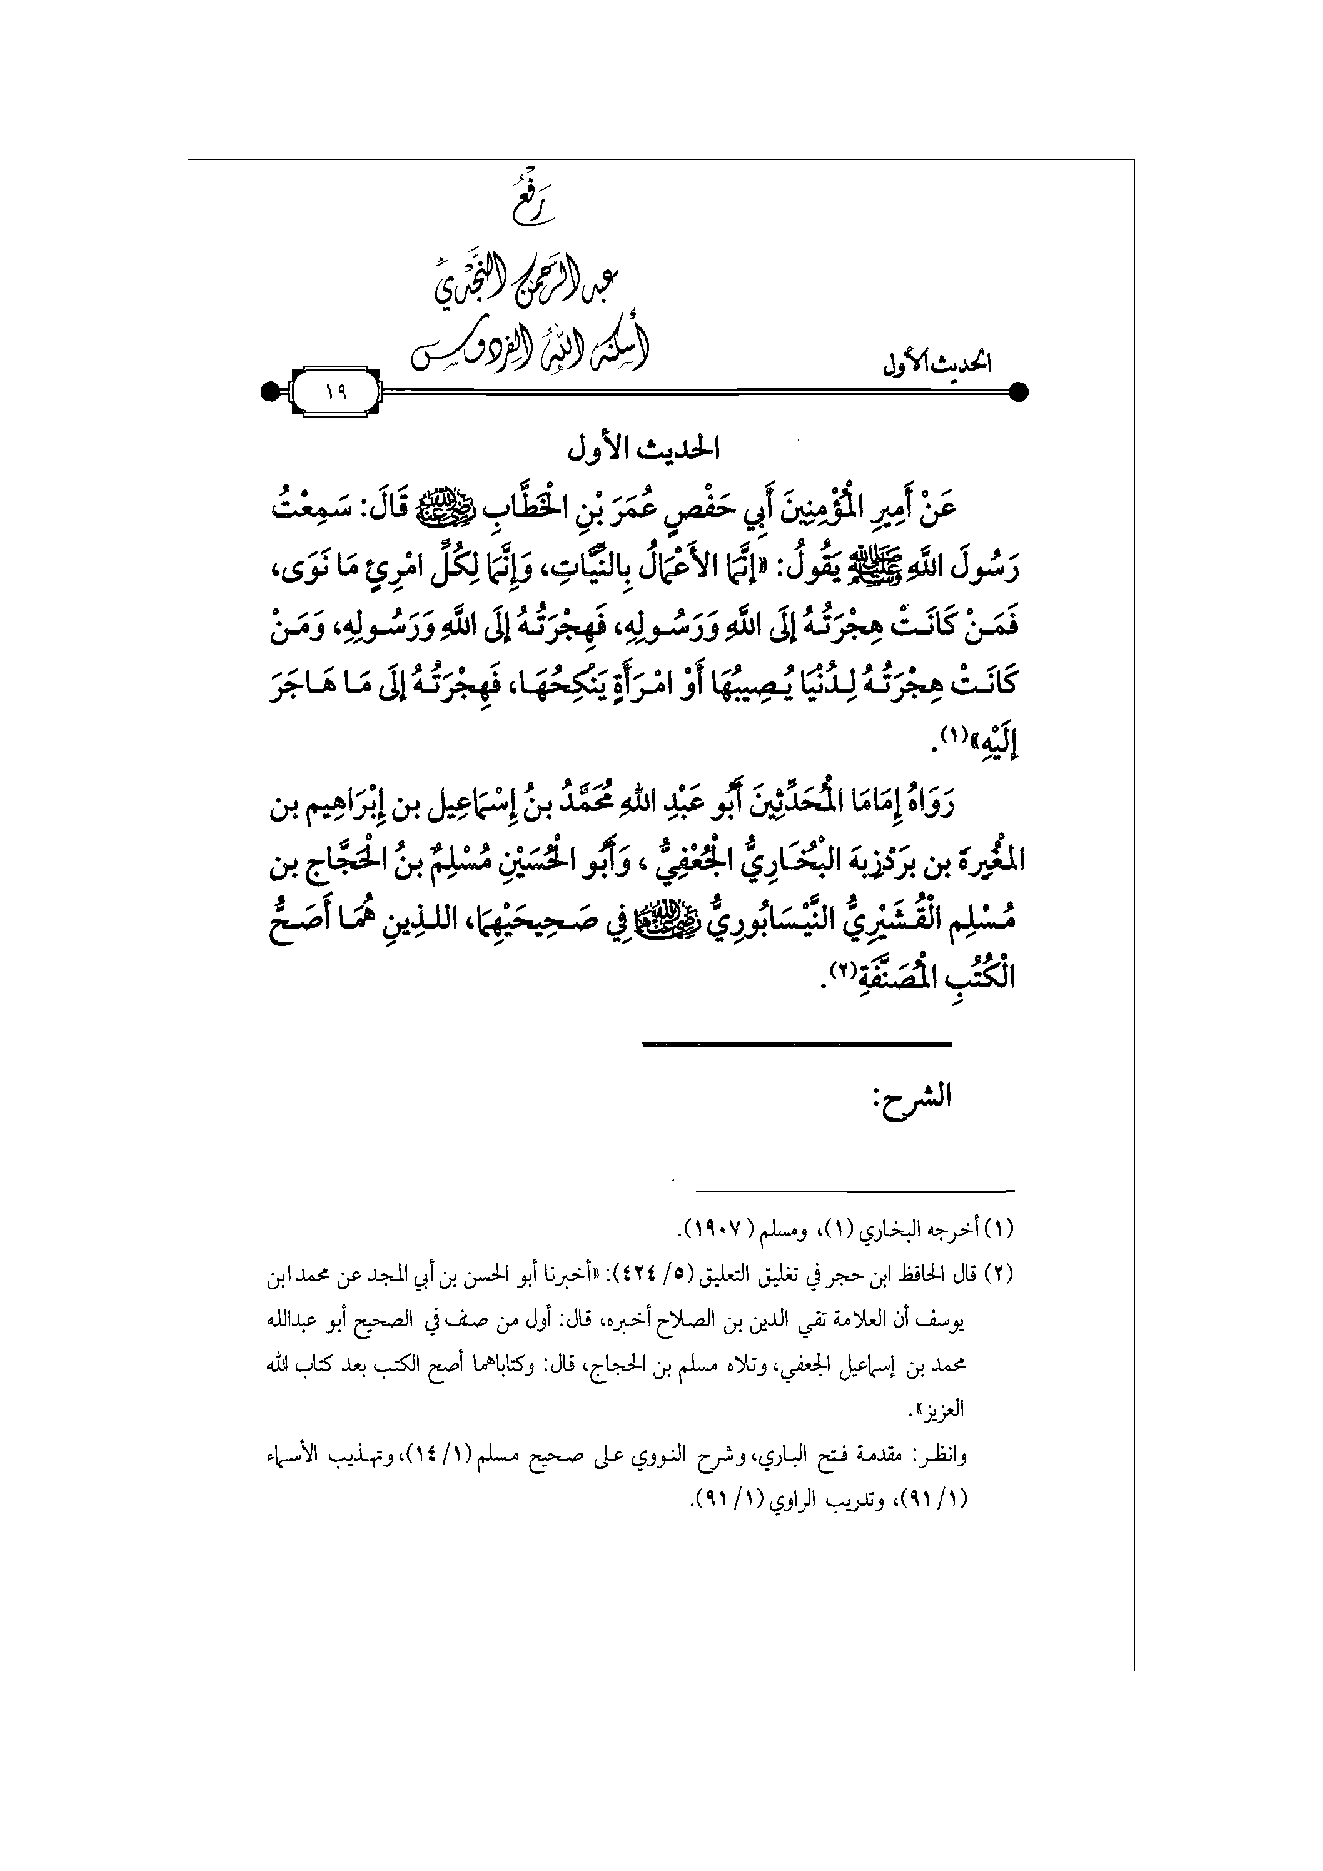 رَفْعُ
عبد الرَّحمن النَّجْديّ
أسكنه اللهُ الفردوس
الحديث الأول
١٩
الحديث الأول
عَنْ أَمِيرِ الْمُؤْمِنِينَ أَبِي حَفْصٍ عُمَرَ بْنِ الْخَطَّابِ رضي الله عنه قَالَ: سَمِعْتُ
رَسُولَ اللَّهِ ﷺ يَقُولُ: «إِنَّمَا الأَعْمَالُ بِالنِّيَّاتِ، وَإِنَّمَا لِكُلِّ امْرِئٍ مَا نَوَى،
فَمَنْ كَانَتْ هِجْرَتُهُ إِلَى اللَّهِ وَرَسُولِهِ، فَهِجْرَتُهُ إِلَى اللَّهِ وَرَسُولِهِ، وَمَنْ
كَانَتْ هِجْرَتُهُ لِدُنْيَا يُصِيبُهَا أَوْ امْرَأَةٍ يَنْكِحُهَا، فَهِجْرَتُهُ إِلَى مَا هَاجَرَ
إِلَيْهِ»(١).
رَوَاهُ إِمَامَا الْمُحَدِّثِينَ أَبُو عَبْدِ اللهِ مُحَمَّدُ بنُ إِسْمَاعِيل بن إِبْرَاهِيم بن
المُغِيرة بن بَرْدِزبه الْبُخَارِيُّ الْجُعْفِيُّ، وَأَبُو الْحُسَيْنِ مُسْلِمُ بنُ الْحَجَّاج بن
مُسْلِم الْقُشَيْرِيُّ النَّيْسَابُورِيُّ رضي الله عنهما فِي صَحِيحَيْهِمَا، اللذِينِ هُمَا أَصَحُّ
الْكُتُبِ الْمُصَنَّفَةِ(٢).
الشرح:
(١) أخرجه البخاري (١)، ومسلم (١٩٠٧).
(٢) قال الحافظ ابن حجر في تغليق التعليق (٥/ ٤٢٤): «أخبرنا أبو الحسن بن أبي المجد عن محمد ابن
يوسف أن العلامة تقي الدين بن الصلاح أخبره، قال: أول من صنف في الصحيح أبو عبدالله
محمد بن إسماعيل الجعفي، وتلاه مسلم بن الحجاج، قال: وكتاباهما أصح الكتب بعد كتاب الله
العزيز».
وانظر: مقدمة فتح الباري، وشرح النووي على صحيح مسلم (١/ ١٤)، وتهذيب الأسماء
(١/ ٩١)، وتدريب الراوي (١/ ٩١).